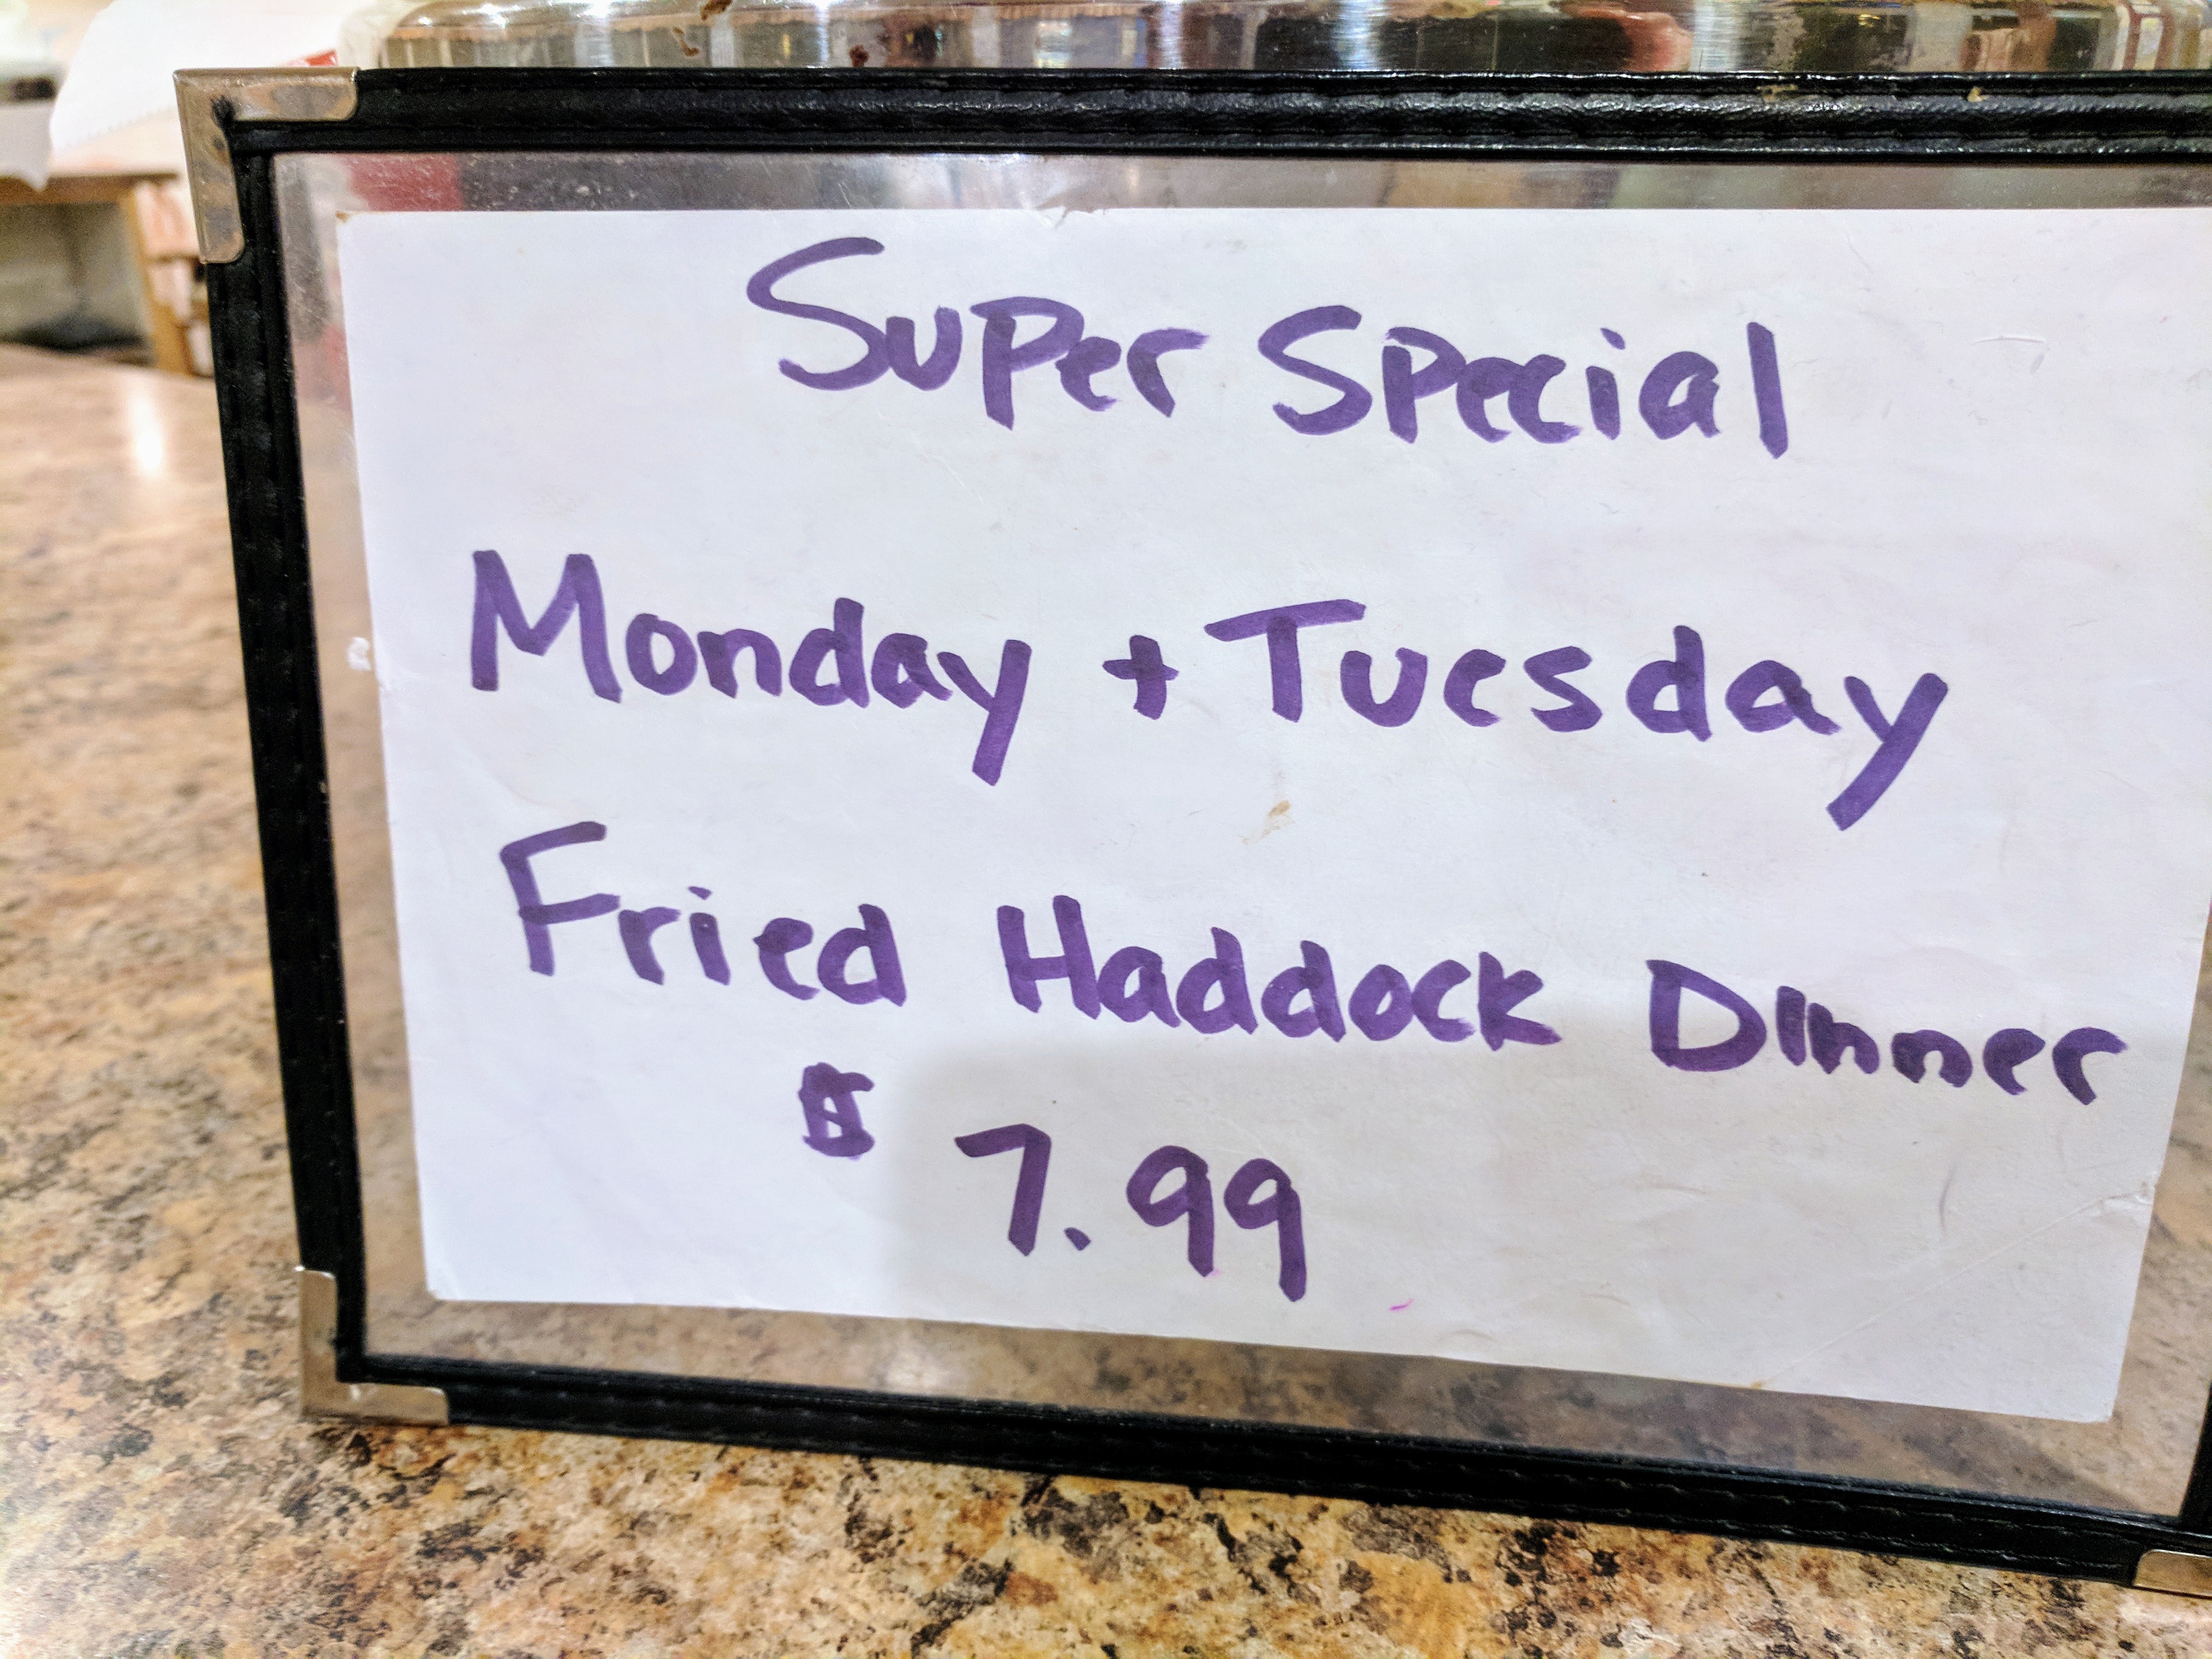 Super Special
Monday + Tuesday
Fried Haddock Dinner
$ 7.99